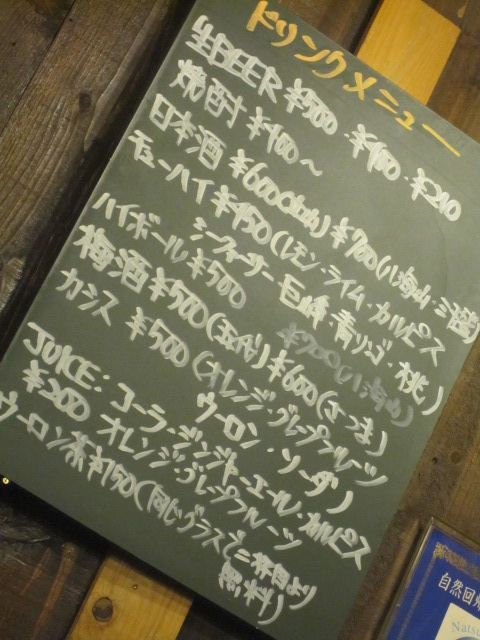 ドリンクメニュー
生BEER ¥500・¥400・¥210
焼酎 ¥400〜
日本酒 ¥600 ¥700(八海山・三
チューハイ ¥450(レモン・ライム・カルピス
シークァーサー・巨峰・青リンゴ・桃)
ハイボール ¥500
梅酒 ¥500(五代) ¥600(さつま)
カシス ¥500(オレンジ・グレープフルーツ
ウーロン・ソーダ)
JUICE:コーラ・ジンジャーエール・カルピス
¥200 オレンジ・グレープフルーツ
ウーロン茶¥150(同じグラスで二杯目より
無料)
自然回帰
Nats